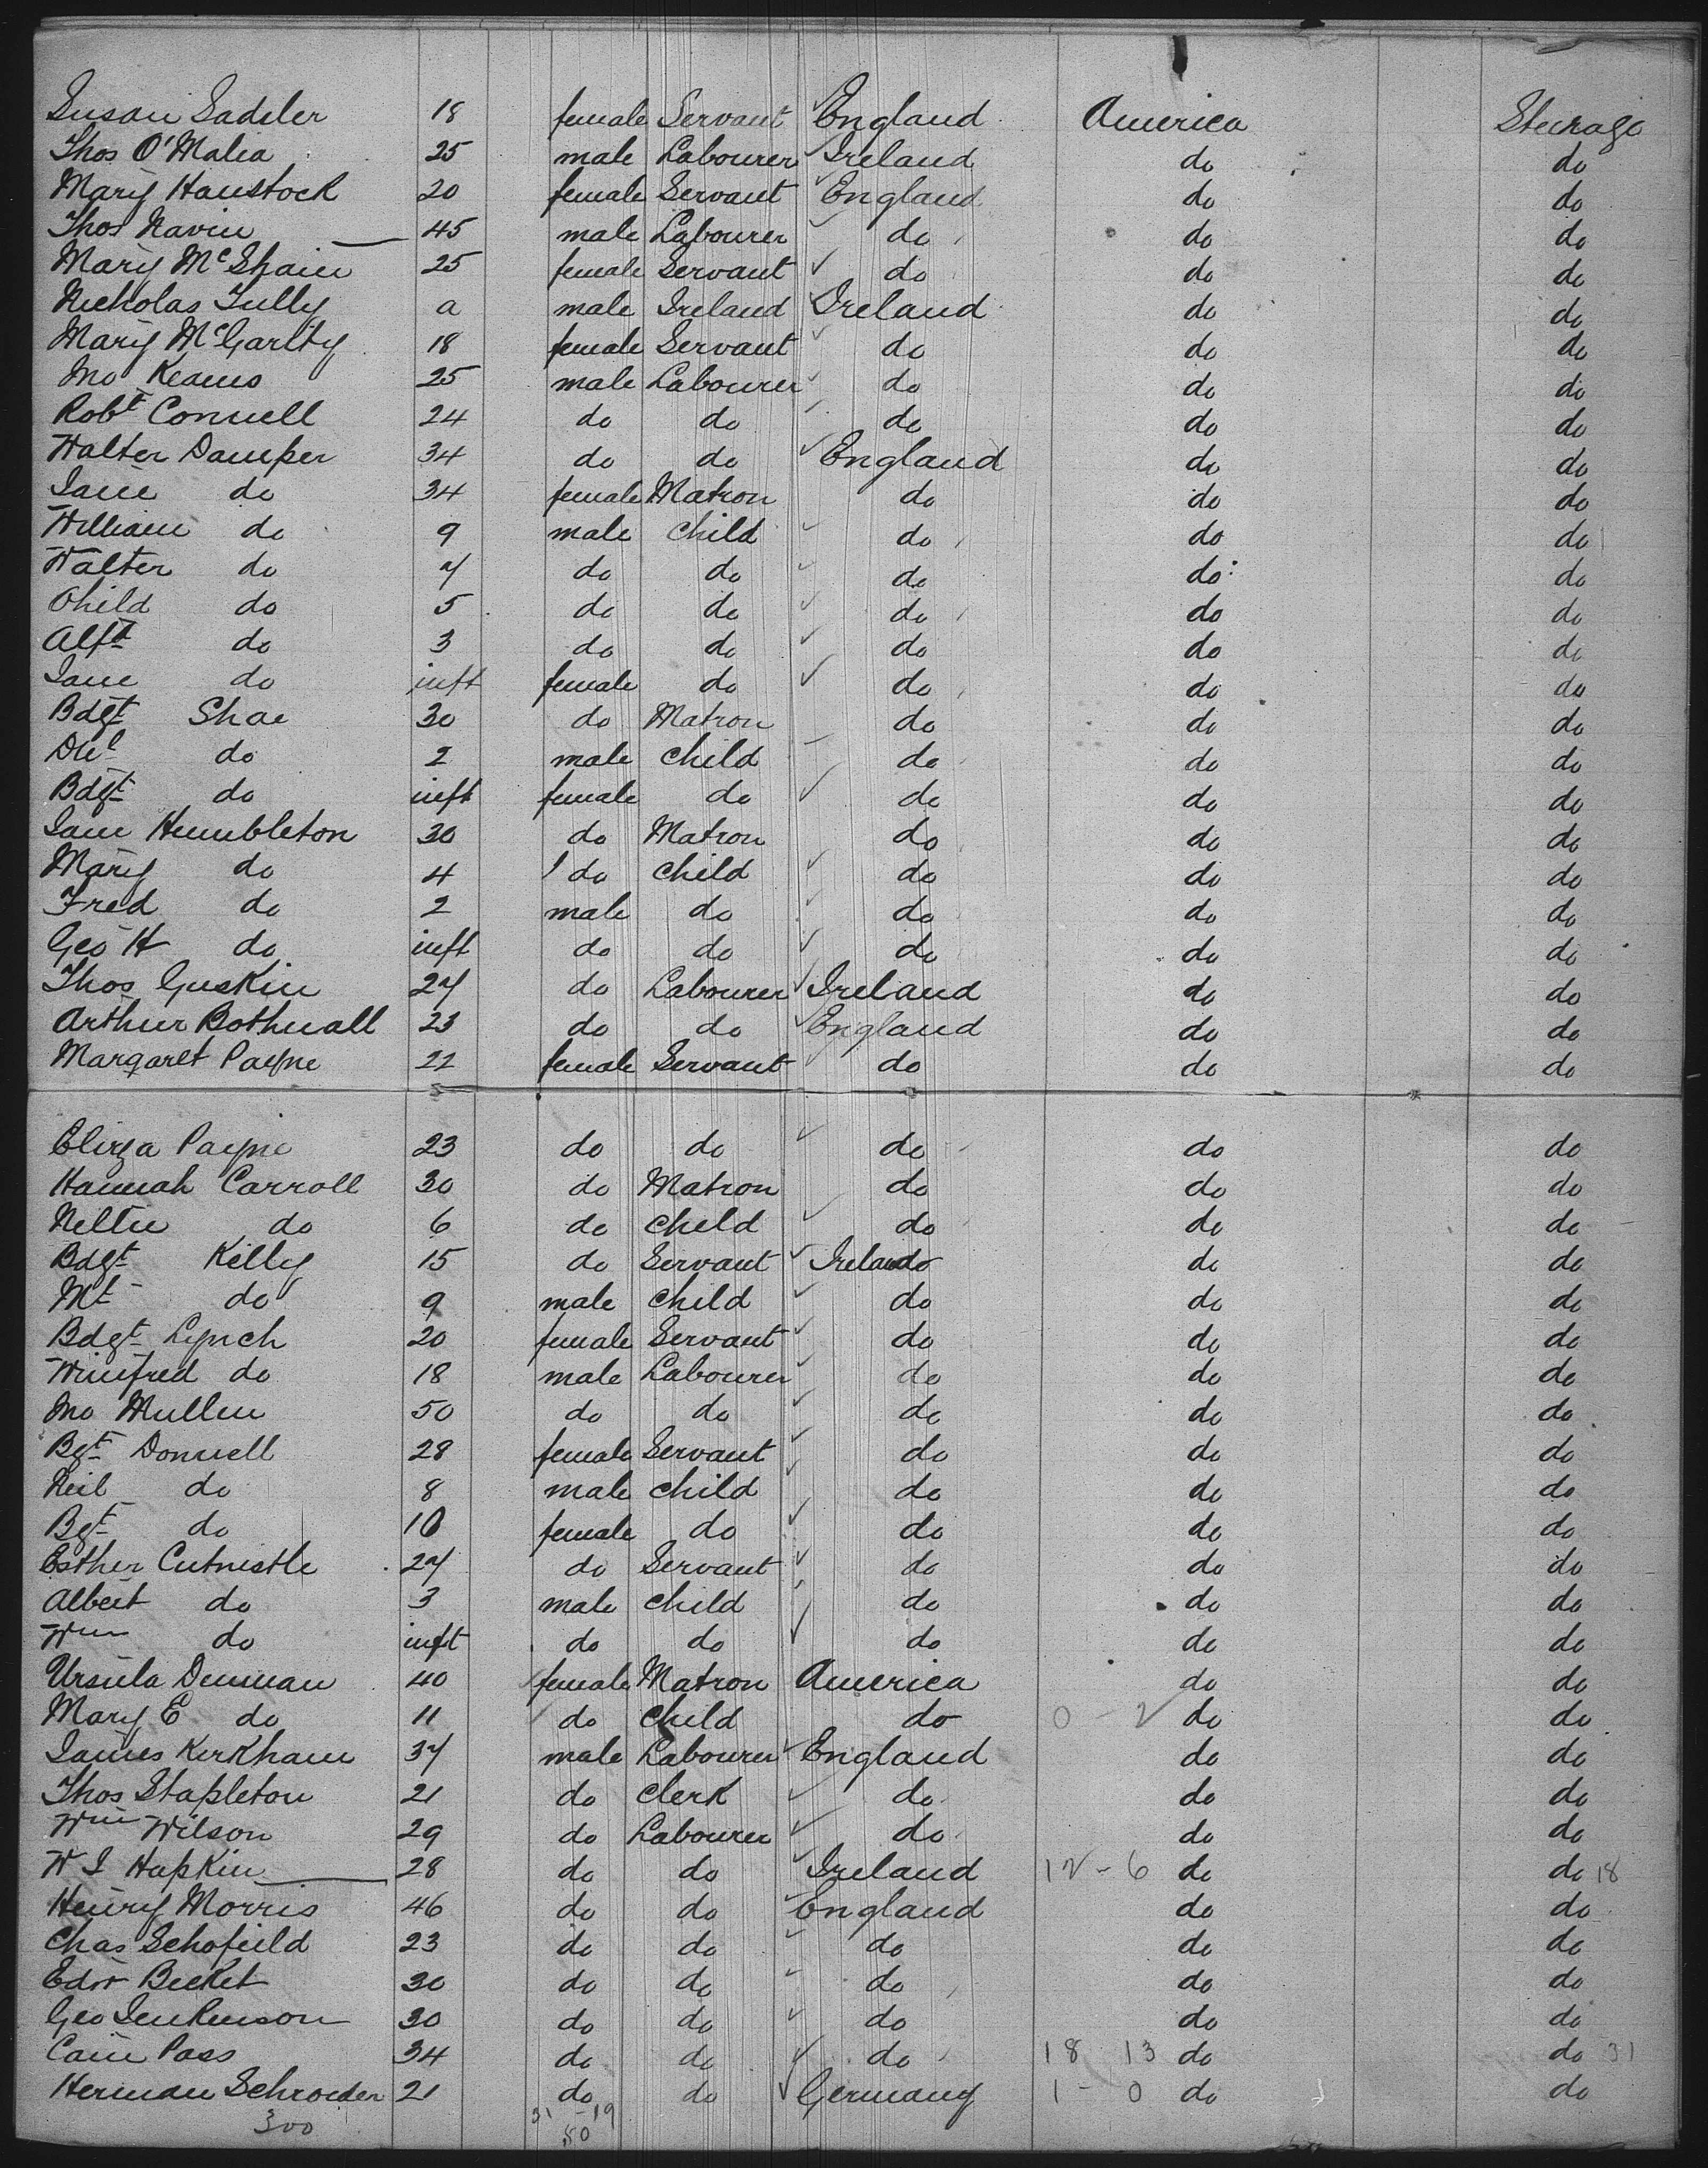 Susan Sadeler 18 female Servant England America Steerage
Thos O'Malia 25 male Labourer Ireland do do
Mary Haustock 20 female Servant England do do
Thos Navin 45 male Labourer do do do
Mary McShain 25 female Servant do do do
Nicholas Tully a male Ireland Ireland do do
Mary McGarity 18 female Servant do do do
Jno Keams 25 male Labourer do do do
Robt Connell 24 do do do do do
Walter Damper 34 do do England do do
Jane do 34 female Matron do do do
William do 9 male child do do do
Walter do 7 do do do do do
Child do 5 do do do do do
Alfd do 3 do do do do do
Jane do inft female do do do do
Bdgt Shae 30 do Matron do do do
Dl do 2 male child do do do
Bdgt do inft female do do do do
Jane Humbleton 30 do Matron do do do
Mary do 4 do child do do do
Fred do 2 male do do do do
Geo H do inft do do do do do
Thos Guskin 27 do Labourer Ireland do do
Arthur Bothuall 23 do do England do do
Margaret Payne 22 female Servant do do do
Eliza Payne 23 do do do do do
Hannah Carroll 30 do Matron do do do
Nellie do 6 do child do do do
Bdgt Kelly 15 do Servant Ireland do do
Mt do 9 male child do do do
Bdgt Lynch 20 female Servant do do do
Winifred do 18 male Labourer do do do
Jno Mullen 50 do do do do do
Bgt Donnell 28 female Servant do do do
Neil do 8 male child do do do
Bgt do 10 female do do do do
Esther Cutnistle 27 do Servant do do do
Albert do 3 male child do do do
Wm do inft do do do do do
Ursula Denman 40 female Matron America do do
Mary E do 11 do child do 0 - 2 do do
James Kirkham 37 male Labourer England do do
Thos Stapleton 21 do clerk do do do
Wm Wilson 29 do Labourer do do do
W J Hapkin 28 do do Ireland 12 - 6 do do 18
Henry Morris 46 do do England do do
Chas Schofield 23 do do do do do
Edw Becket 30 do do do do do
Geo Jenkenson 30 do do do do do
Cain Pass 34 do do do 18 13 do do 31
Herman Schroeder 21 do do Germany 1 - 0 do do
300 31 - 19
50